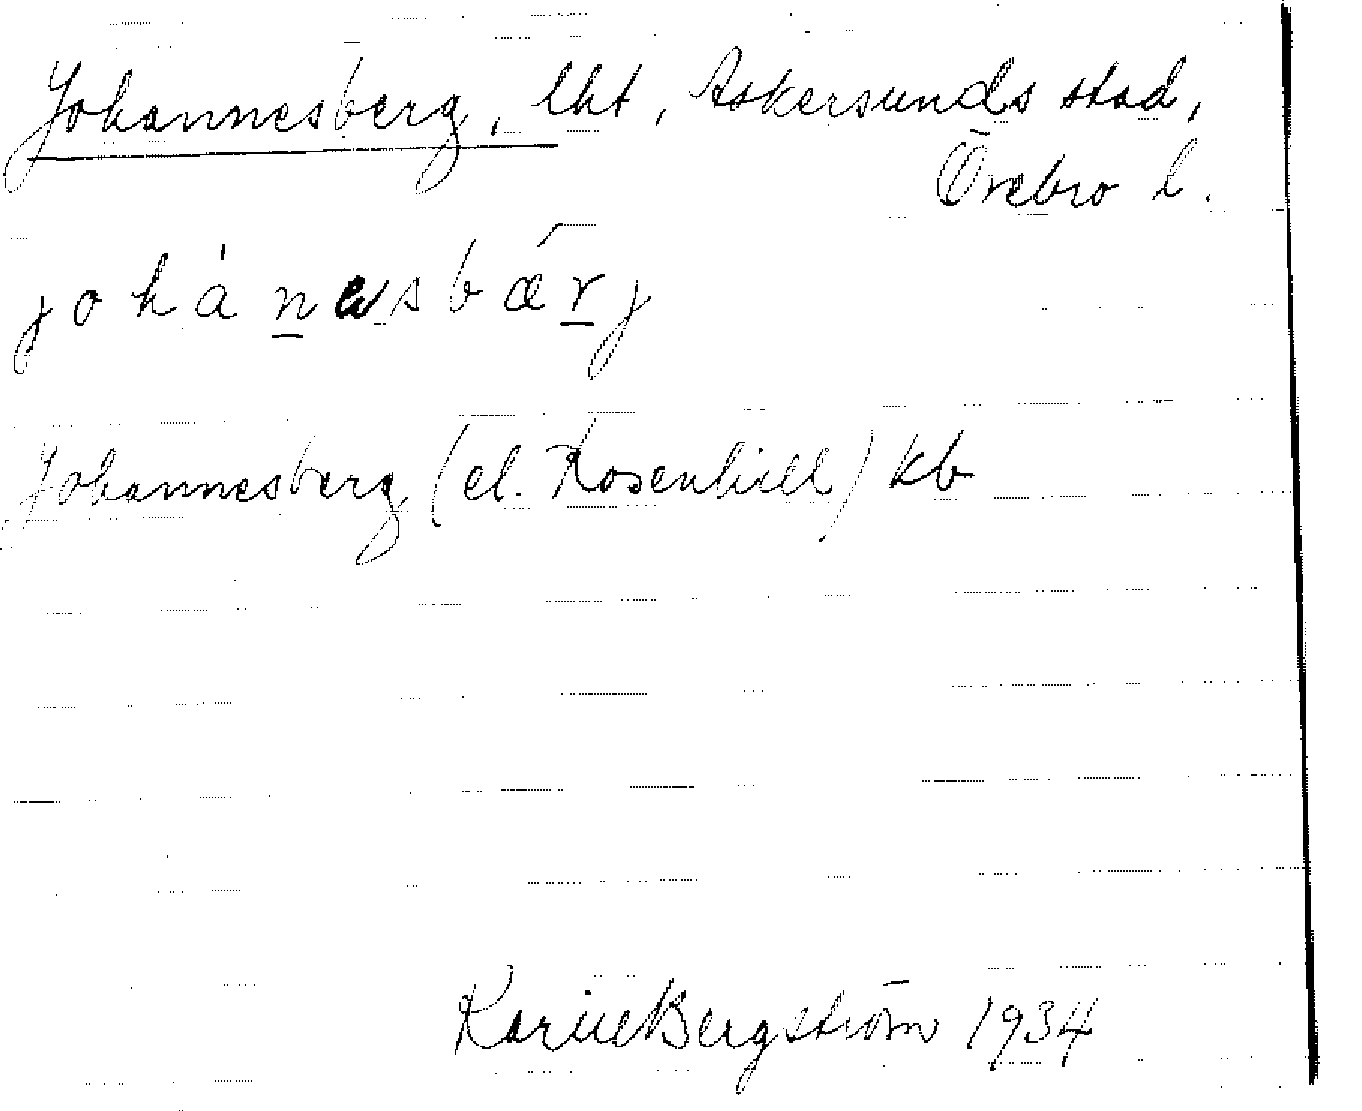 Johannesberg, lht, Askersunds stad,
Örebro l.
johánesbǽrj
Johannesberg (el. Rosenhill) kb
Karin Bergström 1934